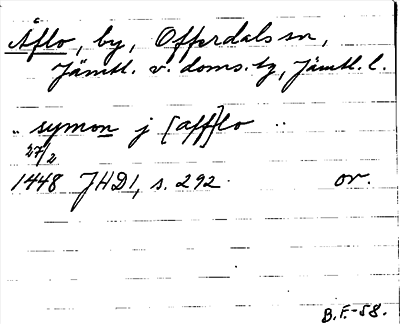 Åflo, by, Offerdals sn,
Jämtl. v. doms. tg, Jämtl. l.
.. symon j [aff]lo ..
27/2
1448 JHD1, s. 292. or.
B.F.-58.